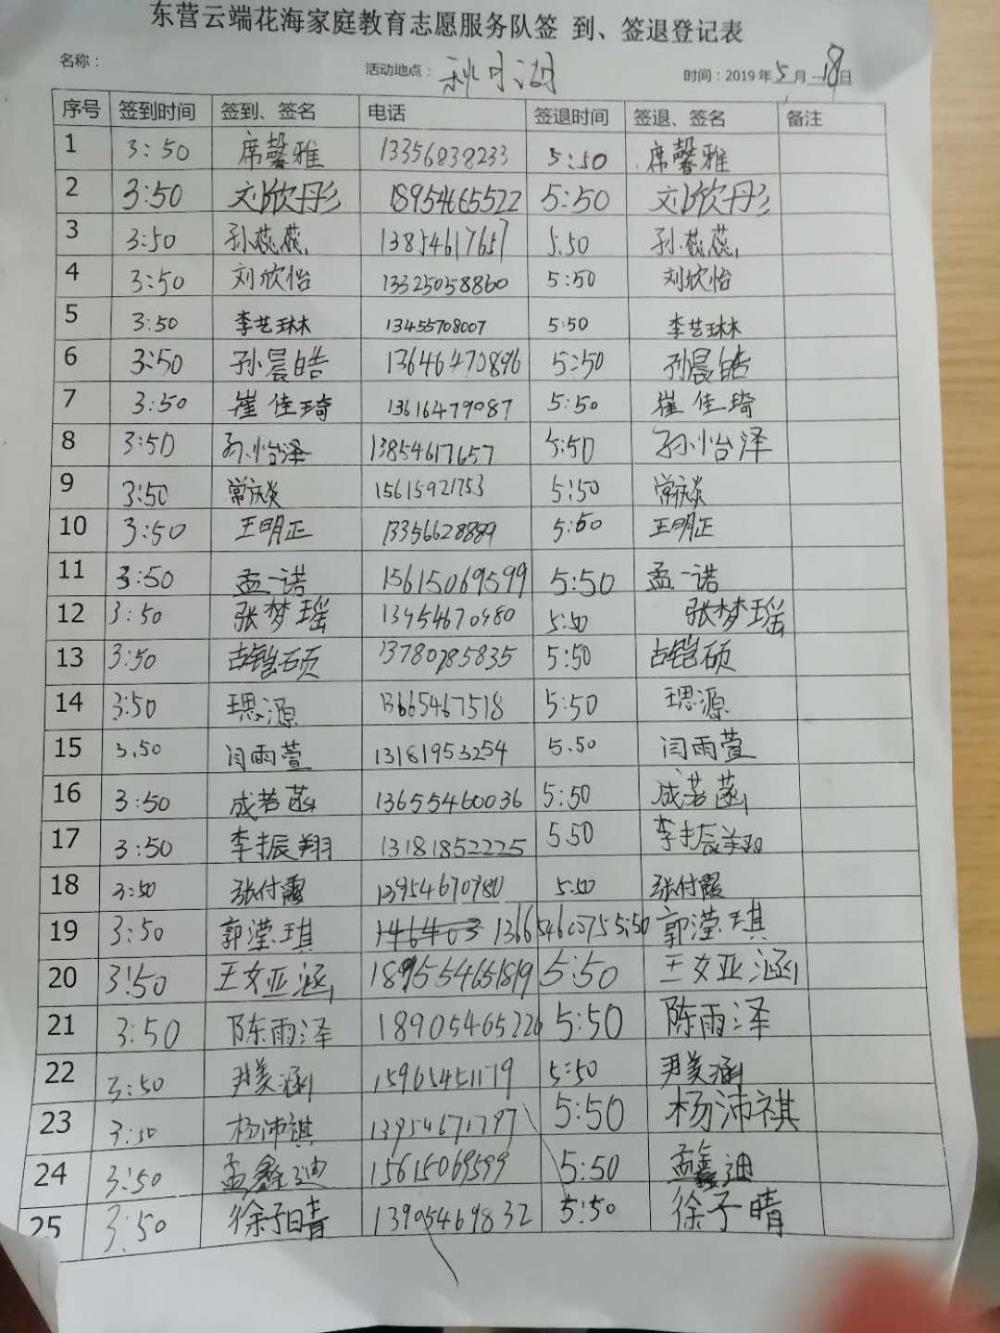 东营云端花海家庭教育志愿服务队签 到、签退登记表
名称： 活动地点： 秋月湖 时间：2019年5月18日
序号 签到时间 签到、签名 电话 签退时间 签退、签名 备注
1 3:50 席馨雅 13356838233 5:50 席馨雅
2 3:50 刘欣彤 18954665522 5:50 刘欣彤
3 3:50 孙蕊蕊 13854617657 5.50 孙蕊蕊
4 3:50 刘欣怡 13325058860 5:50 刘欣怡
5 3:50 李艺琳 13455708007 5:50 李艺琳
6 3:50 孙晨皓 13646470896 5:50 孙晨皓
7 3:50 崔佳琦 13616479087 5:50 崔佳琦
8 3:50 孙怡泽 13854617657 5:50 孙怡泽
9 3:50 常庆炎 15615921753 5:50 常庆炎
10 3:50 王明正 13356628889 5:50 王明正
11 3:50 孟一诺 15615069599 5:50 孟一诺
12 3:50 张梦瑶 13954670980 5:50 张梦瑶
13 3:50 古铠硕 13780785835 5:50 古铠硕
14 3:50 源 13665467518 5:50 源
15 3.50 闫雨萱 13181953254 5.50 闫雨萱
16 3:50 成若菡 13655460036 5:50 成若菡
17 3:50 李振翔 13181852225 5.50 李振翔
18 3:50 张付霞 13954670980 5:50 张付霞
19 3:50 郭滢琪 13665460755 5:50 郭滢琪
20 3:50 王女亚涵 5:50 王女亚涵
21 3:50 陈雨泽 18905465226 5:50 陈雨泽
22 3:50 尹美涵 15965451179 5:50 尹美涵
23 3:50 杨沛祺 13954671797 5:50 杨沛祺
24 3:50 孟鑫迪 15615069599 5:50 孟鑫迪
25 3:50 徐子晴 13905469832 5:50 徐子晴